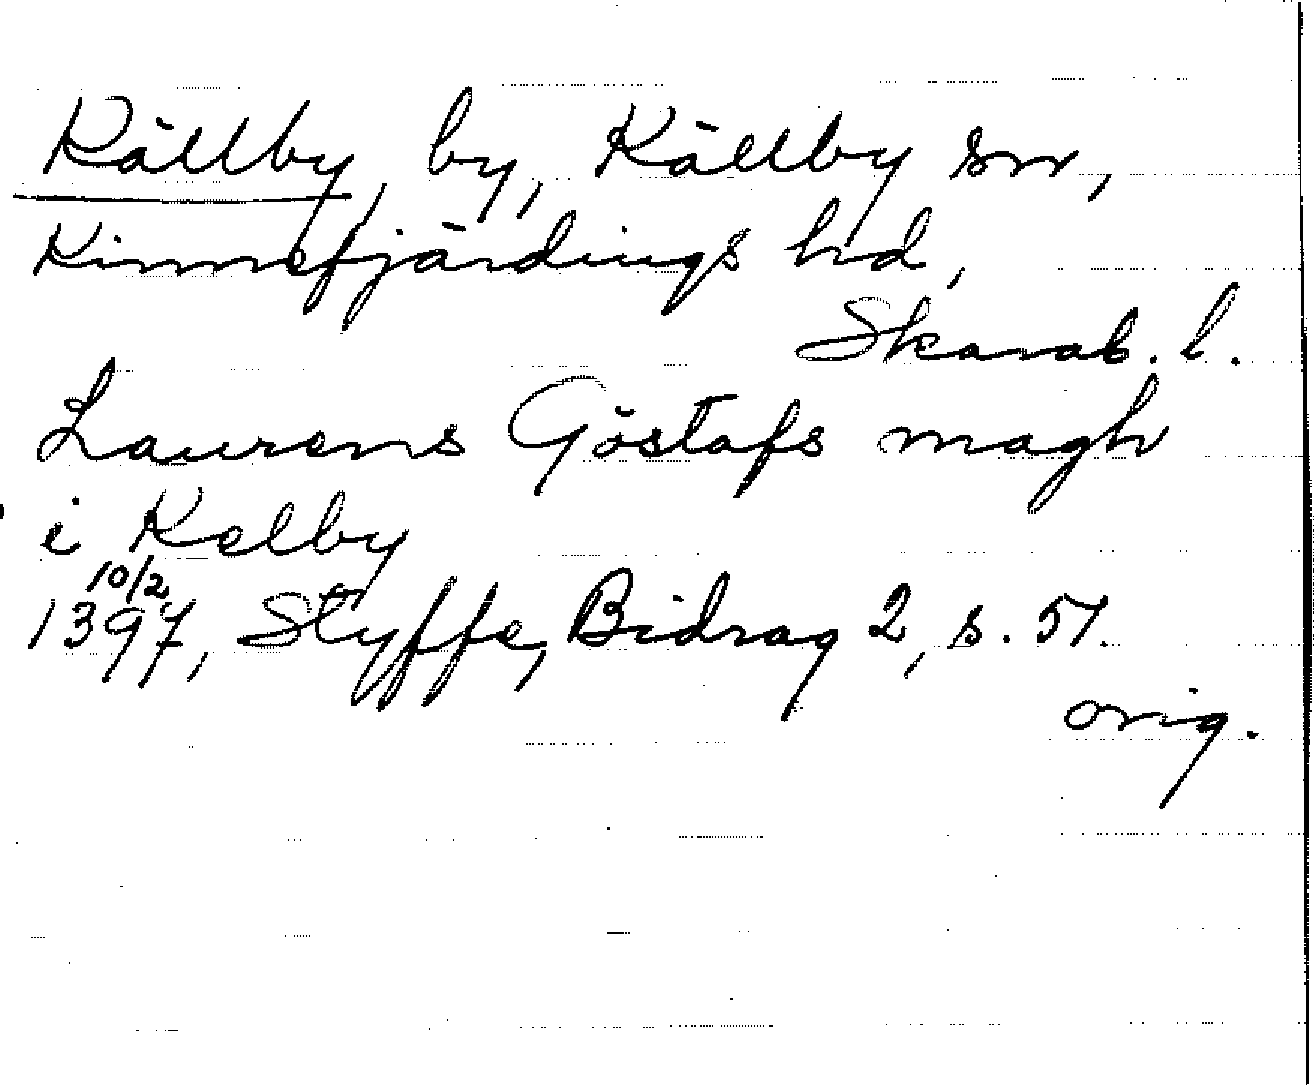 Källby, by, Källby sn,
Kinnefjärdings hd,
Skarab. l.
Laurens Göstafs magh
i Kelby
10/2
1397, Styffe, Bidrag 2, s. 51.
orig.